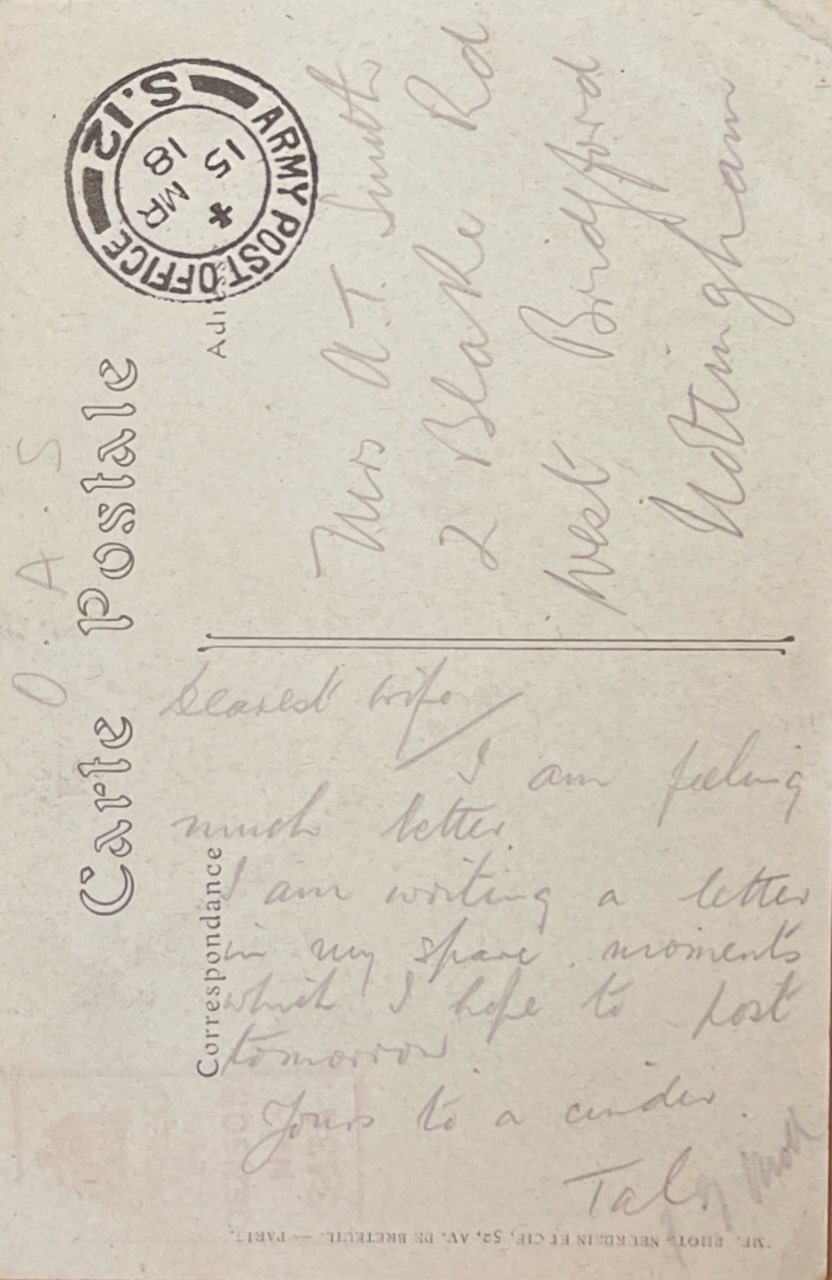 O. A. S
Carte Postale
Correspondance
ARMY POST OFFICE
S.12
15
MR
18
Mrs A.T. Smith
2 Blake Rd
West Bridgford
Nottingham
Dearest wife
I am feeling
much better.
I am writing a letter
in my spare moments
which I hope to post
tomorrow.
Yours to a cinder.
Tal.
IMP. PHOT. NEURDEIN ET CIE, 52, AV. DE BRETEUIL. — PARIS.